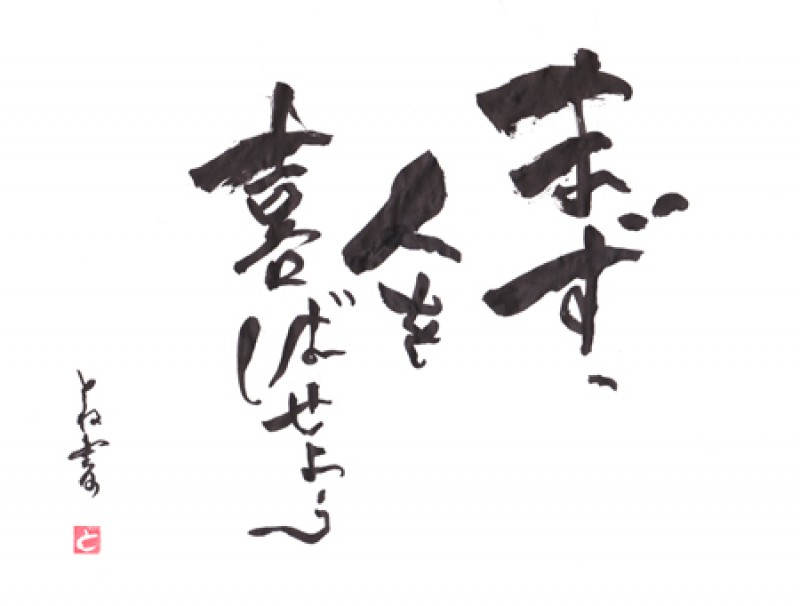 まず、
人を
喜ばせよう
とね書
と